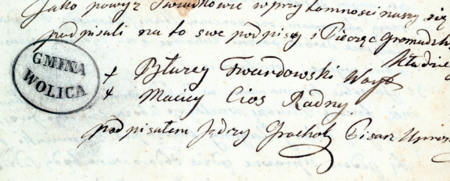 Jako powyż Swiadkowie w przytomności naszy się
podpisali na to swe podpisy i Pieczęć Gromadzk
Kładzie
GMINA
WOLICA
+ Błażey Twardowski Woyt
+ Maciey Cios Radny
podpisałem Jędrzy Grochol Pisarz